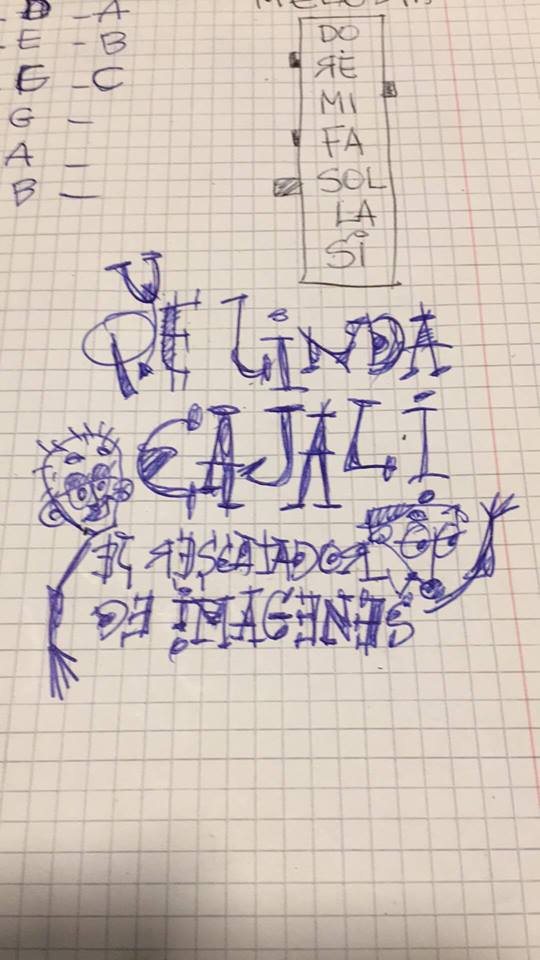 D - A
E - B
E - C
G -
A -
B -
DO
RE
MI
FA
SOL
LA
SI
QUE LINDA
CAJALI
EL RESCATADOR
DE IMAGENES